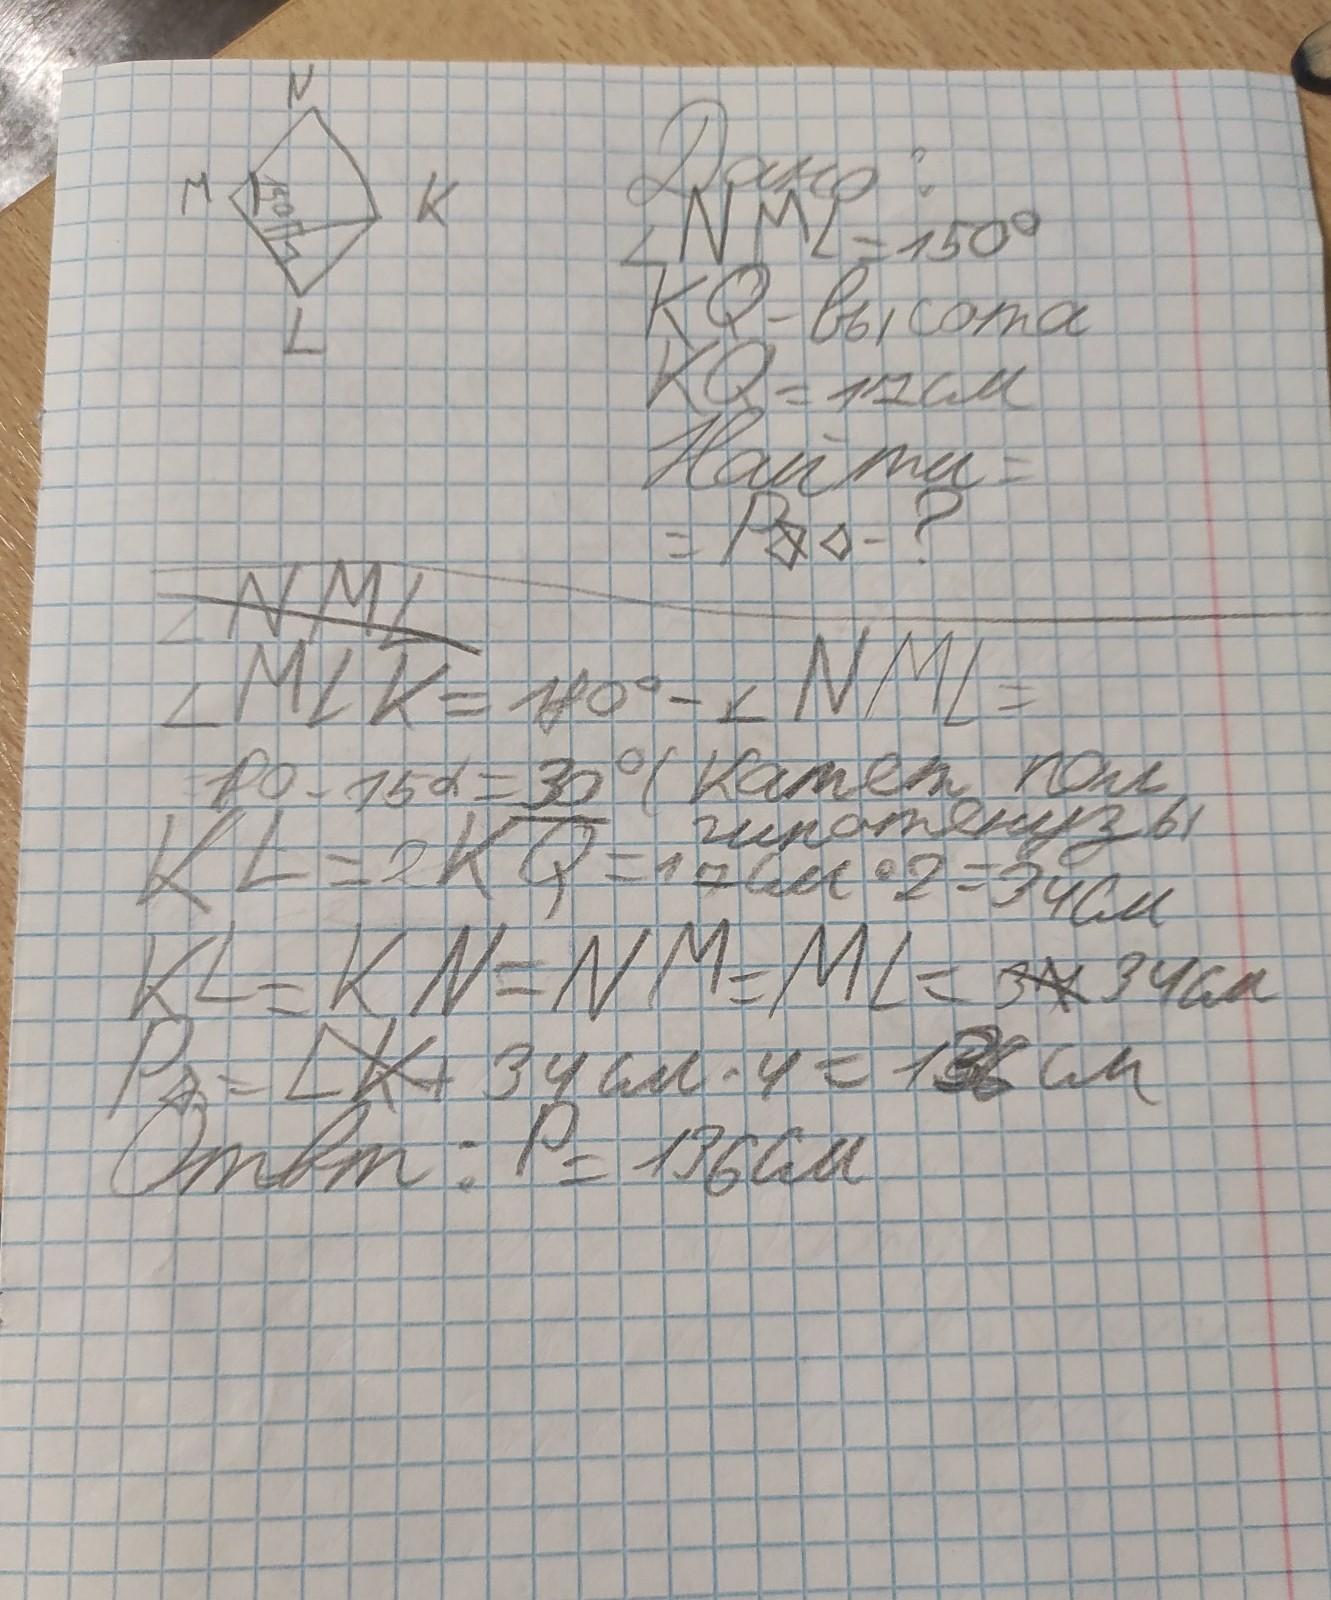 N
M
150
K
L
Дано:
∠NML=150°
KQ-высота
KQ=17см
Найти=
=P◇-?
∠NML
∠MLK=180°-∠NML=
=180-150=30°(катет пол
гипотенузы
KL=2KQ=17см•2=34см
KL=KN=NM=ML=34см
P◇=34см·4=136см
Отвт: P=136см